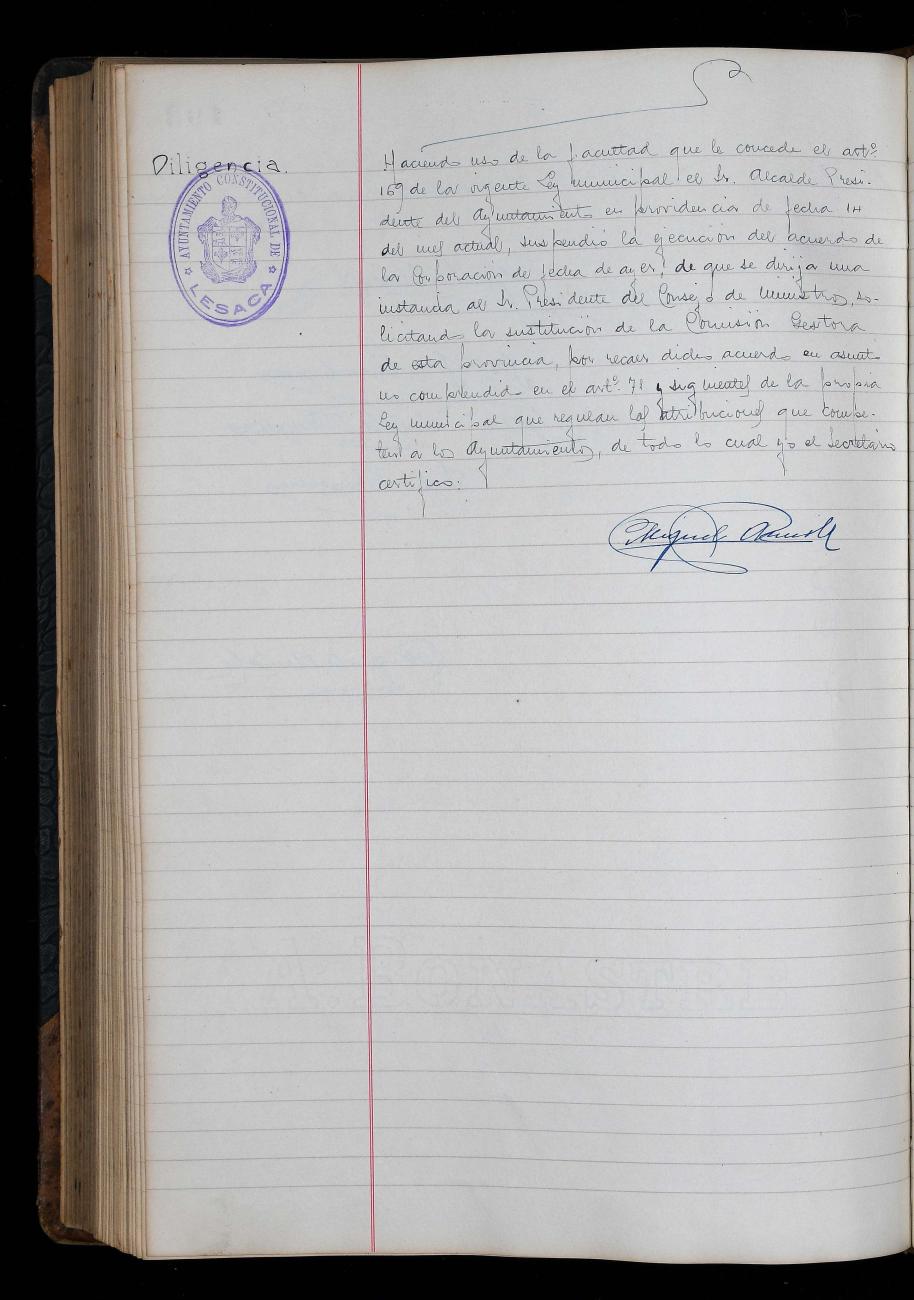 Diligencia.
AYUNTAMIENTO CONSTITUCIONAL DE
LESACA
Haciendo uso de la facultad que le concede el artº.
169 de la vigente Ley municipal el Sr. Alcalde Presi-
dente del Ayuntamiento en providencia de fecha 14
del mes actual, suspendió la ejecución del acuerdo de
la Corporación de fecha de ayer, de que se dirija una
instancia al Sr. Presidente del Consejo de Ministros, so-
licitando la sustitución de la Comisión Gestora
de esta provincia, por recaer dicho acuerdo en asunto
no comprendido en el artº. 71 y siguientes de la propia
Ley municipal que regulan las atribuciones que compe-
ten á los Ayuntamientos, de todo lo cual yo el Secretario
certifico.
Miguel